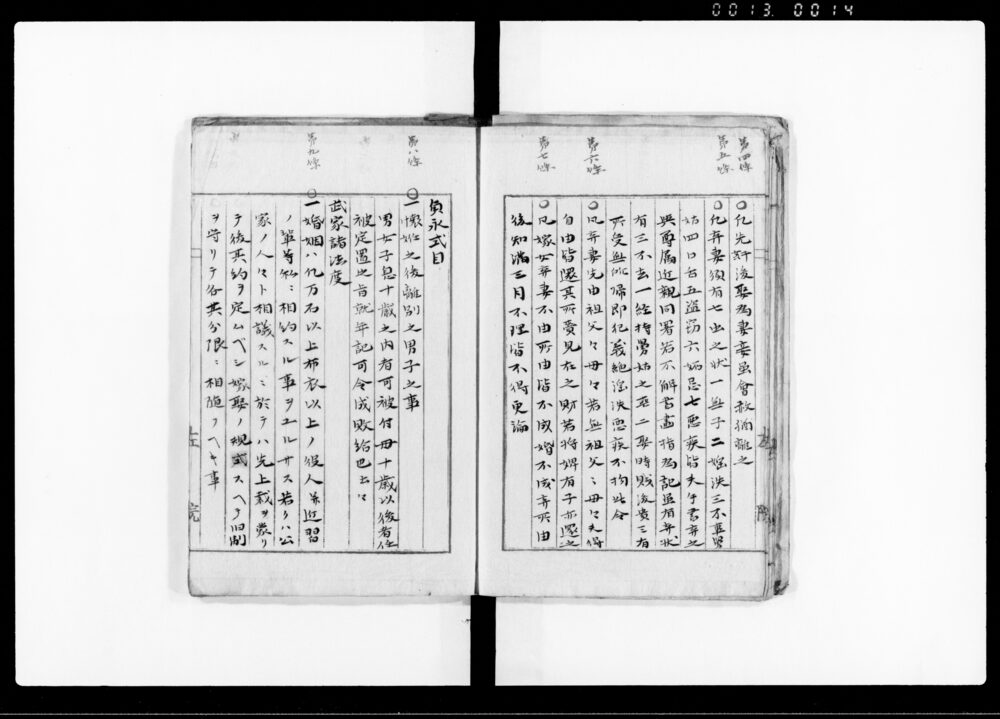 0013 0014
第四條
〇凡先奸後娶為妻妾雖會赦猶離之
第五條
〇凡弃妻須有七出之状一無子二婬泆三不事舅
姑四口舌五盗窃六妬忌七悪疾皆夫手書弃之
與尊属近親同署若不解書畫指為記妻有弃状
有三不去一経持舅姑之喪二娶時賎後貴三有
所受無所帰即犯義絶淫泆悪疾不拘此令
第六條
〇凡弃妻先由祖父々母々若無祖父々母々夫得
自由皆還其所賫見在之財若将婢有子亦還之
第七條
〇凡嫁女弃妻不由所由皆不成婚不成弃所由
後知満三月不理皆不得更論
貞永式目
第八條
〇一懐妊之後離別之男子之事
男女子息十歳之内者可被付母十歳以後者任
被定置之旨就年記可令成敗給也云々
武家諸法度
第九條
〇一婚姻ハ凡万石以上布衣以上ノ役人并近習
ノ輩等私ニ相約スル事ヲユルサス若クハ公
家ノ人々ト相議スルニ於テハ先上裁ヲ蒙リ
テ後其約ヲ定ムベシ嫁娶ノ規式スヘテ旧制
ヲ守リテ各其分限ニ相随フヘキ事
左院